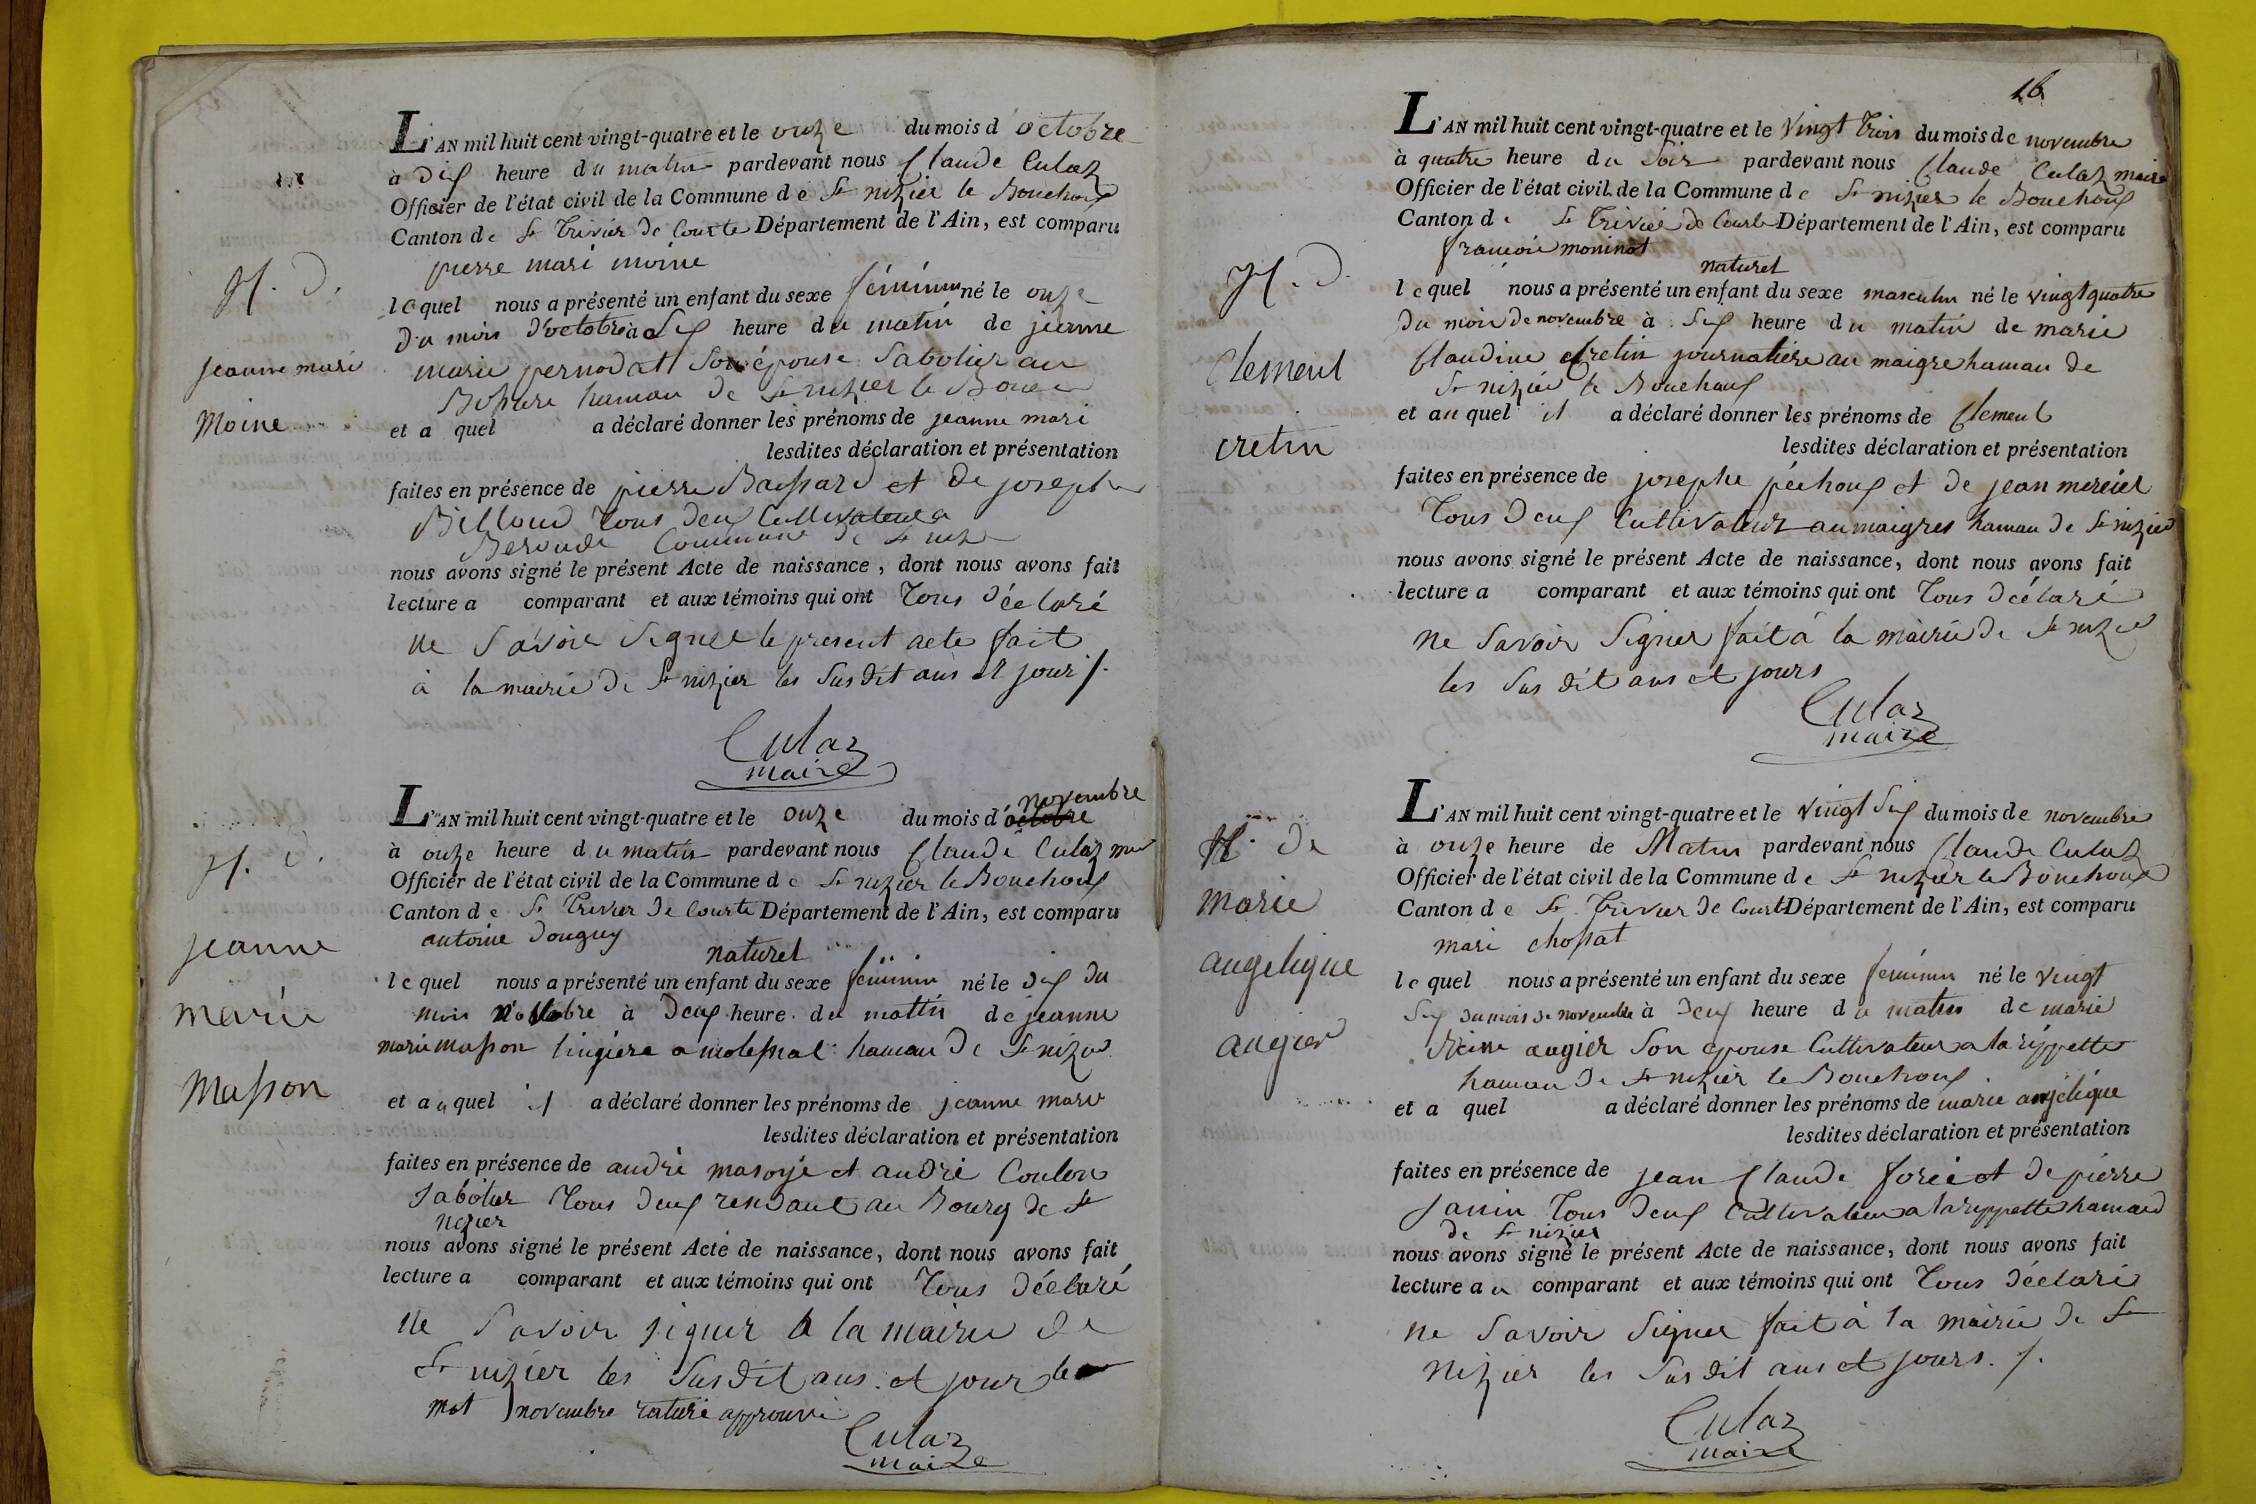 L'AN mil huit cent vingt-quatre et le onze du mois d'octobre
à dix heure du matin pardevant nous Claude Culaz
Officier de l'état civil de la Commune de St nizier le Bouchoux
Canton de St Trivier de Courte Département de l'Ain, est comparu
pierre mari moine
H. D.
lequel nous a présenté un enfant du sexe féminin né le onze
du mois d'octobre à Six heure du matin de jeanne
jeanne mari
marie pernodat Son épouse Sabotier au
hamau de St nizier le
Moine
et a quel a déclaré donner les prénoms de jeanne mari
lesdites déclaration et présentation
faites en présence de pierre Bassard et de joseph
Billoud Tous deux Cultivateurs
Commune de St
nous avons signé le présent Acte de naissance, dont nous avons fait
lecture a comparant et aux témoins qui ont Tous déclaré
ne Savoir Signer le present acte fait
à la mairie de St nizier les Susdit ans et jour /.
Culaz
maire
L'AN mil huit cent vingt-quatre et le onze du mois d'octobre novembre
à onze heure du matin pardevant nous Claude Culaz
Officier de l'état civil de la Commune de St nizier le Bouchoux
Canton de St Trivier de Courte Département de l'Ain, est comparu
antoine douguy
naturel
lequel nous a présenté un enfant du sexe féminin né le dix du
mois à deux heure du matin de jeanne
marie Masson lingière a molessat hamau de St nizier
jeanne
marie
Masson
et auquel il a déclaré donner les prénoms de jeanne marie
lesdites déclaration et présentation
faites en présence de andré et andré Coulon
Sabotier Tous deux residant au Bourg de St
nizier
nous avons signé le présent Acte de naissance, dont nous avons fait
lecture a comparant et aux témoins qui ont Tous déclaré
ne Savoir signer à la mairie de
St nizier les Susdit ans et jour le
mot novembre raturé approuvé
Culaz
maire
16
L'AN mil huit cent vingt-quatre et le vingt trois du mois de novembre
à quatre heure du Soir pardevant nous Claude Culaz maire
Officier de l'état civil de la Commune de St nizier le Bouchoux
Canton de St Trivier de Courte Département de l'Ain, est comparu
francois moninot
naturel
H. D.
lequel nous a présenté un enfant du sexe masculin né le vingt quatre
du mois de novembre à Six heure du matin de marie
Claudine Cretin journaliere au maigre hamau de
St nizier le Bouchoux
Clement
cretin
et auquel il a déclaré donner les prénoms de Clement
lesdites déclaration et présentation
faites en présence de josephe péchoux et de jean
Tous deux Cultivateur au maigres hamau de St nizier
nous avons signé le présent Acte de naissance, dont nous avons fait
lecture a comparant et aux témoins qui ont Tous déclaré
ne Savoir Signer fait à la mairie de St nizier
les Sus dit ans et jours
Culaz
maire
L'AN mil huit cent vingt-quatre et le vingt Six du mois de novembre
à onze heure de Matin pardevant nous Claude Culaz
Officier de l'état civil de la Commune de St nizier le Bouchoux
Canton de St Trivier de Courte Département de l'Ain, est comparu
mari chossat
lequel nous a présenté un enfant du sexe féminin né le vingt
Six du mois de novembre à deux heure du matin de marie
augier Son epouse Cultivateur a la rippette
hamau de St nizier le Bouchoux
marie
angelique
augier
et a quel a déclaré donner les prénoms de marie angélique
lesdites déclaration et présentation
faites en présence de jean Claude et de pierre
janin Tous deux Cultivateur a la rippette hamau
de St nizier
nous avons signé le présent Acte de naissance, dont nous avons fait
lecture au comparant et aux témoins qui ont Tous déclaré
ne Savoir Signer fait à la mairie de St
nizier les Sus dit ans et jours. /.
Culaz
maire